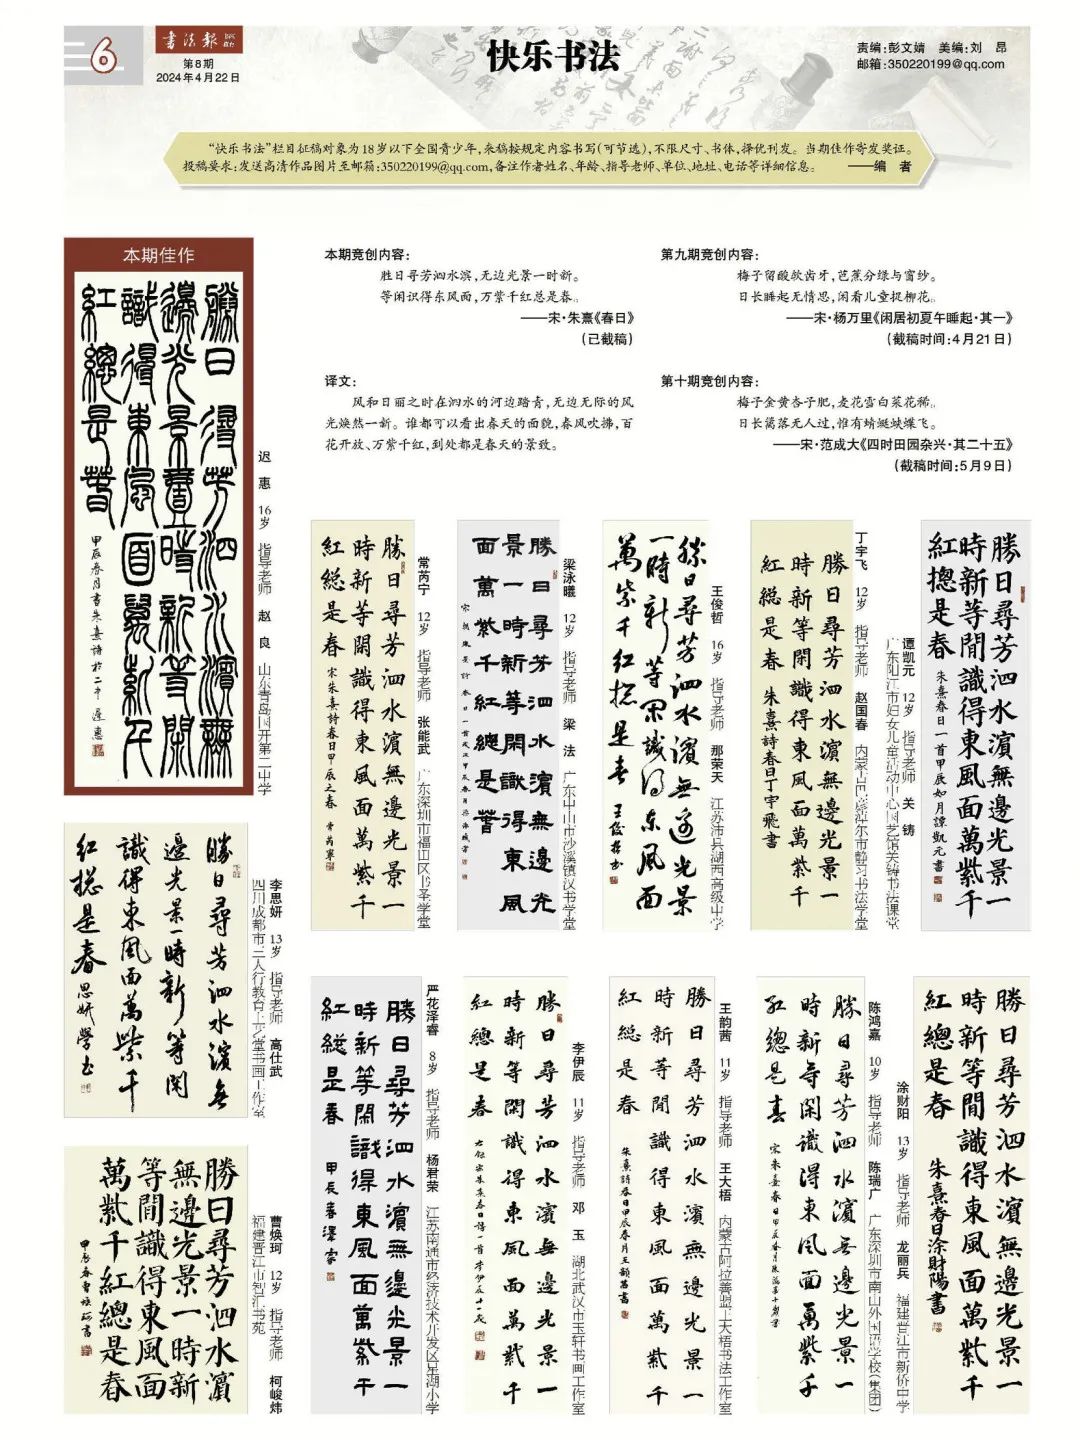 6
书法报
第8期
2024年4月22日
快乐书法
责编:彭文婧 美编:刘 昂
邮箱:350220199@qq.com
“快乐书法”栏目征稿对象为18岁以下全国青少年,来稿按规定内容书写(可节选),不限尺寸、书体,择优刊发。当期佳作寄发奖证。
投稿要求:发送高清作品图片至邮箱:350220199@qq.com,备注作者姓名、年龄、指导老师、单位、地址、电话等详细信息。 ——编 者
本期佳作
勝日尋芳泗水濱無
邊光景壹時新等閑
識得東風面萬紫千
紅總是春
甲辰春月書朱熹詩於二中 遲惠
迟 惠 16岁 指导老师 赵 良 山东青岛国开第二中学
本期竞创内容:
胜日寻芳泗水滨,无边光景一时新。
等闲识得东风面,万紫千红总是春。
——宋·朱熹《春日》
(已截稿)
第九期竞创内容:
梅子留酸软齿牙,芭蕉分绿与窗纱。
日长睡起无情思,闲看儿童捉柳花。
——宋·杨万里《闲居初夏午睡起·其一》
(截稿时间:4月21日)
译文:
风和日丽之时在泗水的河边踏青,无边无际的风
光焕然一新。谁都可以看出春天的面貌,春风吹拂,百
花开放、万紫千红,到处都是春天的景致。
第十期竞创内容:
梅子金黄杏子肥,麦花雪白菜花稀。
日长篱落无人过,惟有蜻蜓蛱蝶飞。
——宋·范成大《四时田园杂兴·其二十五》
(截稿时间:5月9日)
勝日尋芳泗水濱無邊光景一
時新等閒識得東風面萬紫千
紅摠是春
朱熹春日一首甲辰如月譚凱元書
谭凯元 12岁 指导老师 关 铸
广东阳江市妇女儿童活动中心国艺馆关铸书法课堂
勝日尋芳泗水濱無邊光景一
時新等閑識得東風面萬紫千
紅總是春
朱熹詩春日丁宇飛書
丁宇飞 12岁 指导老师 赵国春 内蒙古巴彦淖尔市静习书法学堂
勝日尋芳泗水濱無邊光景
一時新等閑識得東風面
萬紫千紅摠是春
王俊哲書
王俊哲 16岁 指导老师 那荣天 江苏沛县湖西高级中学
勝日尋芳泗水濱無邊光
景一時新等閑識得東風
面萬紫千紅總是春
梁泳曦 12岁 指导老师 梁 法 广东中山市沙溪镇汉书学堂
勝日尋芳泗水濱無邊光景一
時新等閑識得東風面萬紫千
紅總是春
宋朱熹詩春日甲辰之春 常芮寧
常芮宁 12岁 指导老师 张能武 广东深圳市福田区书圣学堂
勝日尋芳泗水濱無
邊光景一時新等閑
識得東風面萬紫千
紅摠是春
思妍學書
李思妍 13岁 指导老师 高仕武
四川成都市三人行教育上艺堂书画工作室
勝日尋芳泗水濱
無邊光景一時新
等閒識得東風面
萬紫千紅總是春
甲辰春曹煥珂書
曹焕珂 12岁 指导老师 柯峻炜
福建晋江市智汇书苑
勝日尋芳泗水濱無邊光景一
時新等閒識得東風面萬紫千
紅總是春
朱熹春日涂財陽書
涂财阳 13岁 指导老师 龙丽兵 福建晋江市新侨中学
勝日尋芳泗水濱無邊光景一
時新等閑識得東風面萬紫千
紅總是春
陈鸿嘉 10岁 指导老师 陈瑞广 广东深圳市南山外国语学校(集团)
勝日尋芳泗水濱無邊光景一
時新等閒識得東風面萬紫千
紅總是春
朱熹詩春日甲辰春月王韻茜書
王韵茜 11岁 指导老师 王大梧 内蒙古阿拉善盟王大梧书法工作室
勝日尋芳泗水濱無邊光景一
時新等閑識得東風面萬紫千
紅總是春
李伊辰 11岁 指导老师 邓 玉 湖北武汉市玉轩书画工作室
勝日尋芳泗水濱無邊光景一
時新等閑識得東風面萬紫千
紅總是春
甲辰春澤睿
严花泽睿 8岁 指导老师 杨君荣 江苏南通市经济技术开发区星湖小学